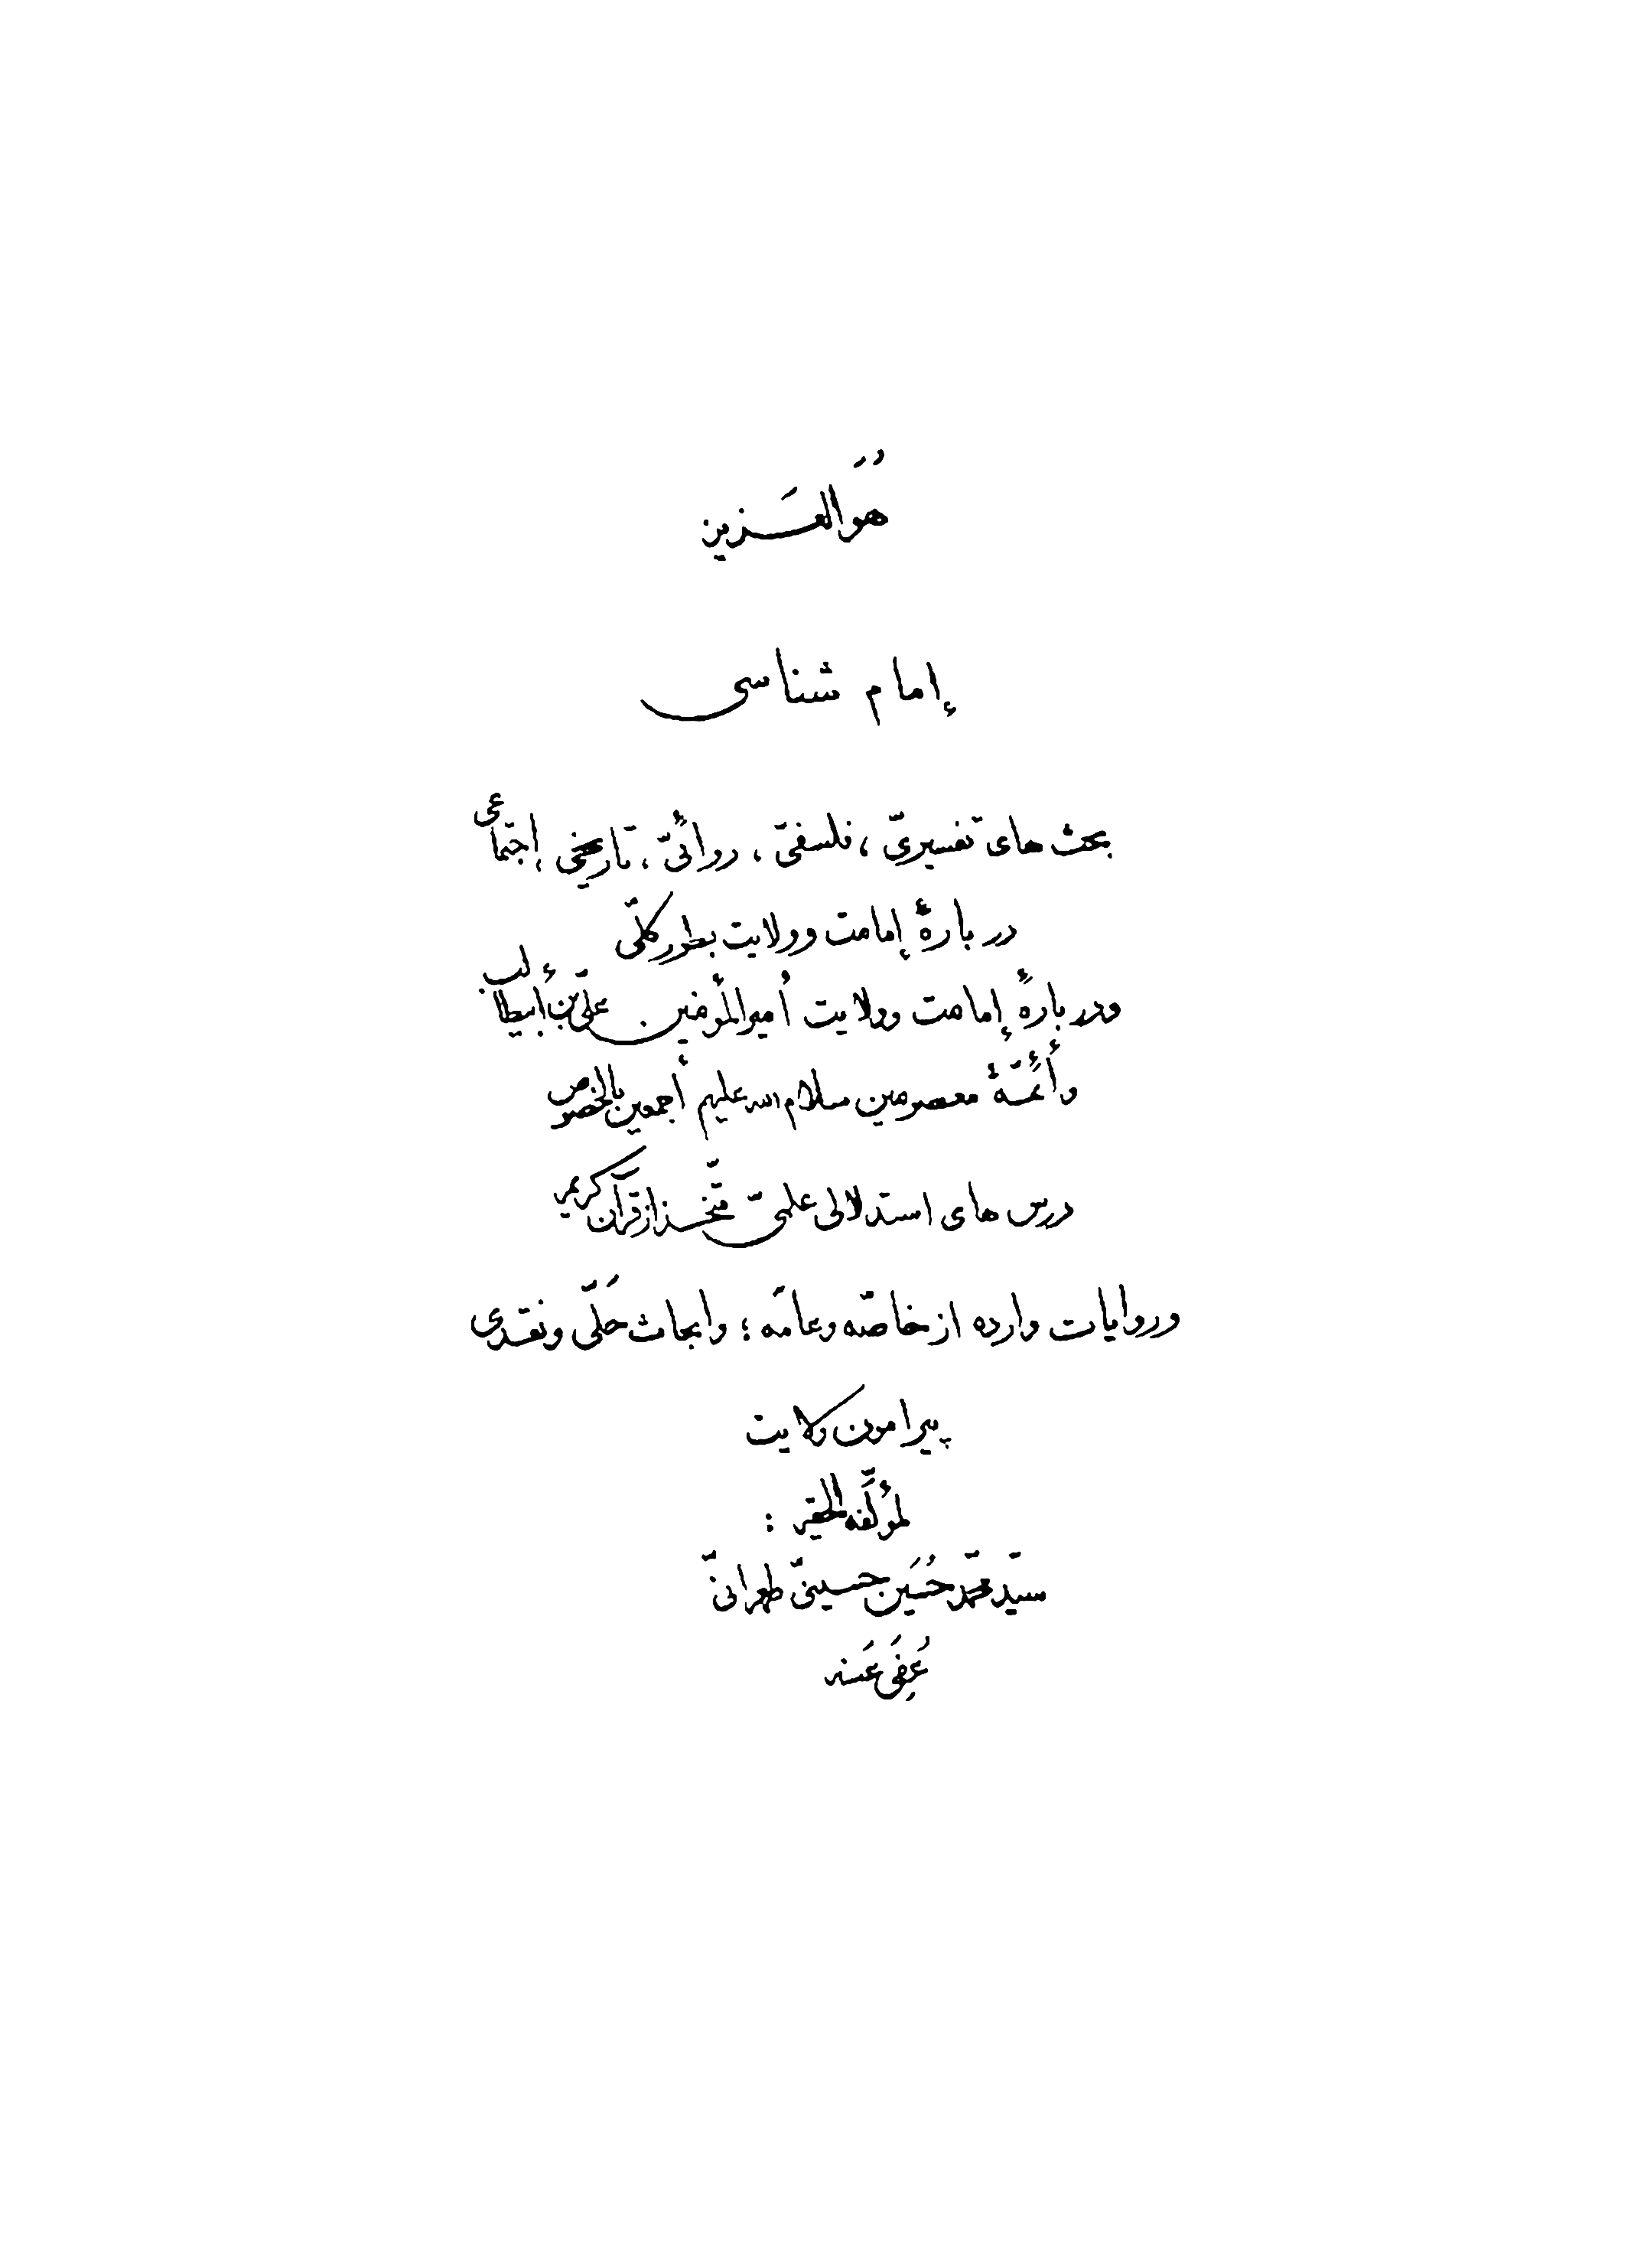 هُوَ العَزیز
إمام شناسی
بحث های تفسیریّ ، فلسفیّ ، روائیّ ، تاریخی ، إجتماعی
در بارۀ إمامت و ولایت بطور کلّی
و در بارۀ إمامت و ولایت أمیرالمؤمنین علیّ بن أبیطالب
و أئمّۀ معصومین سلام الله علیهم أجمعین بالخصوص
درس های استدلالی علمیّ متّخذ از قرآن کریم
و روایات وارده از خاصّه و عامّه ؛ و ابحاث حَلّی و نقدی
پیرامون ولایت
لمؤلّفه الحقیر :
سیّد محمّد حُسَین حسینیّ طهرانیّ
عُفِیَ عَنه